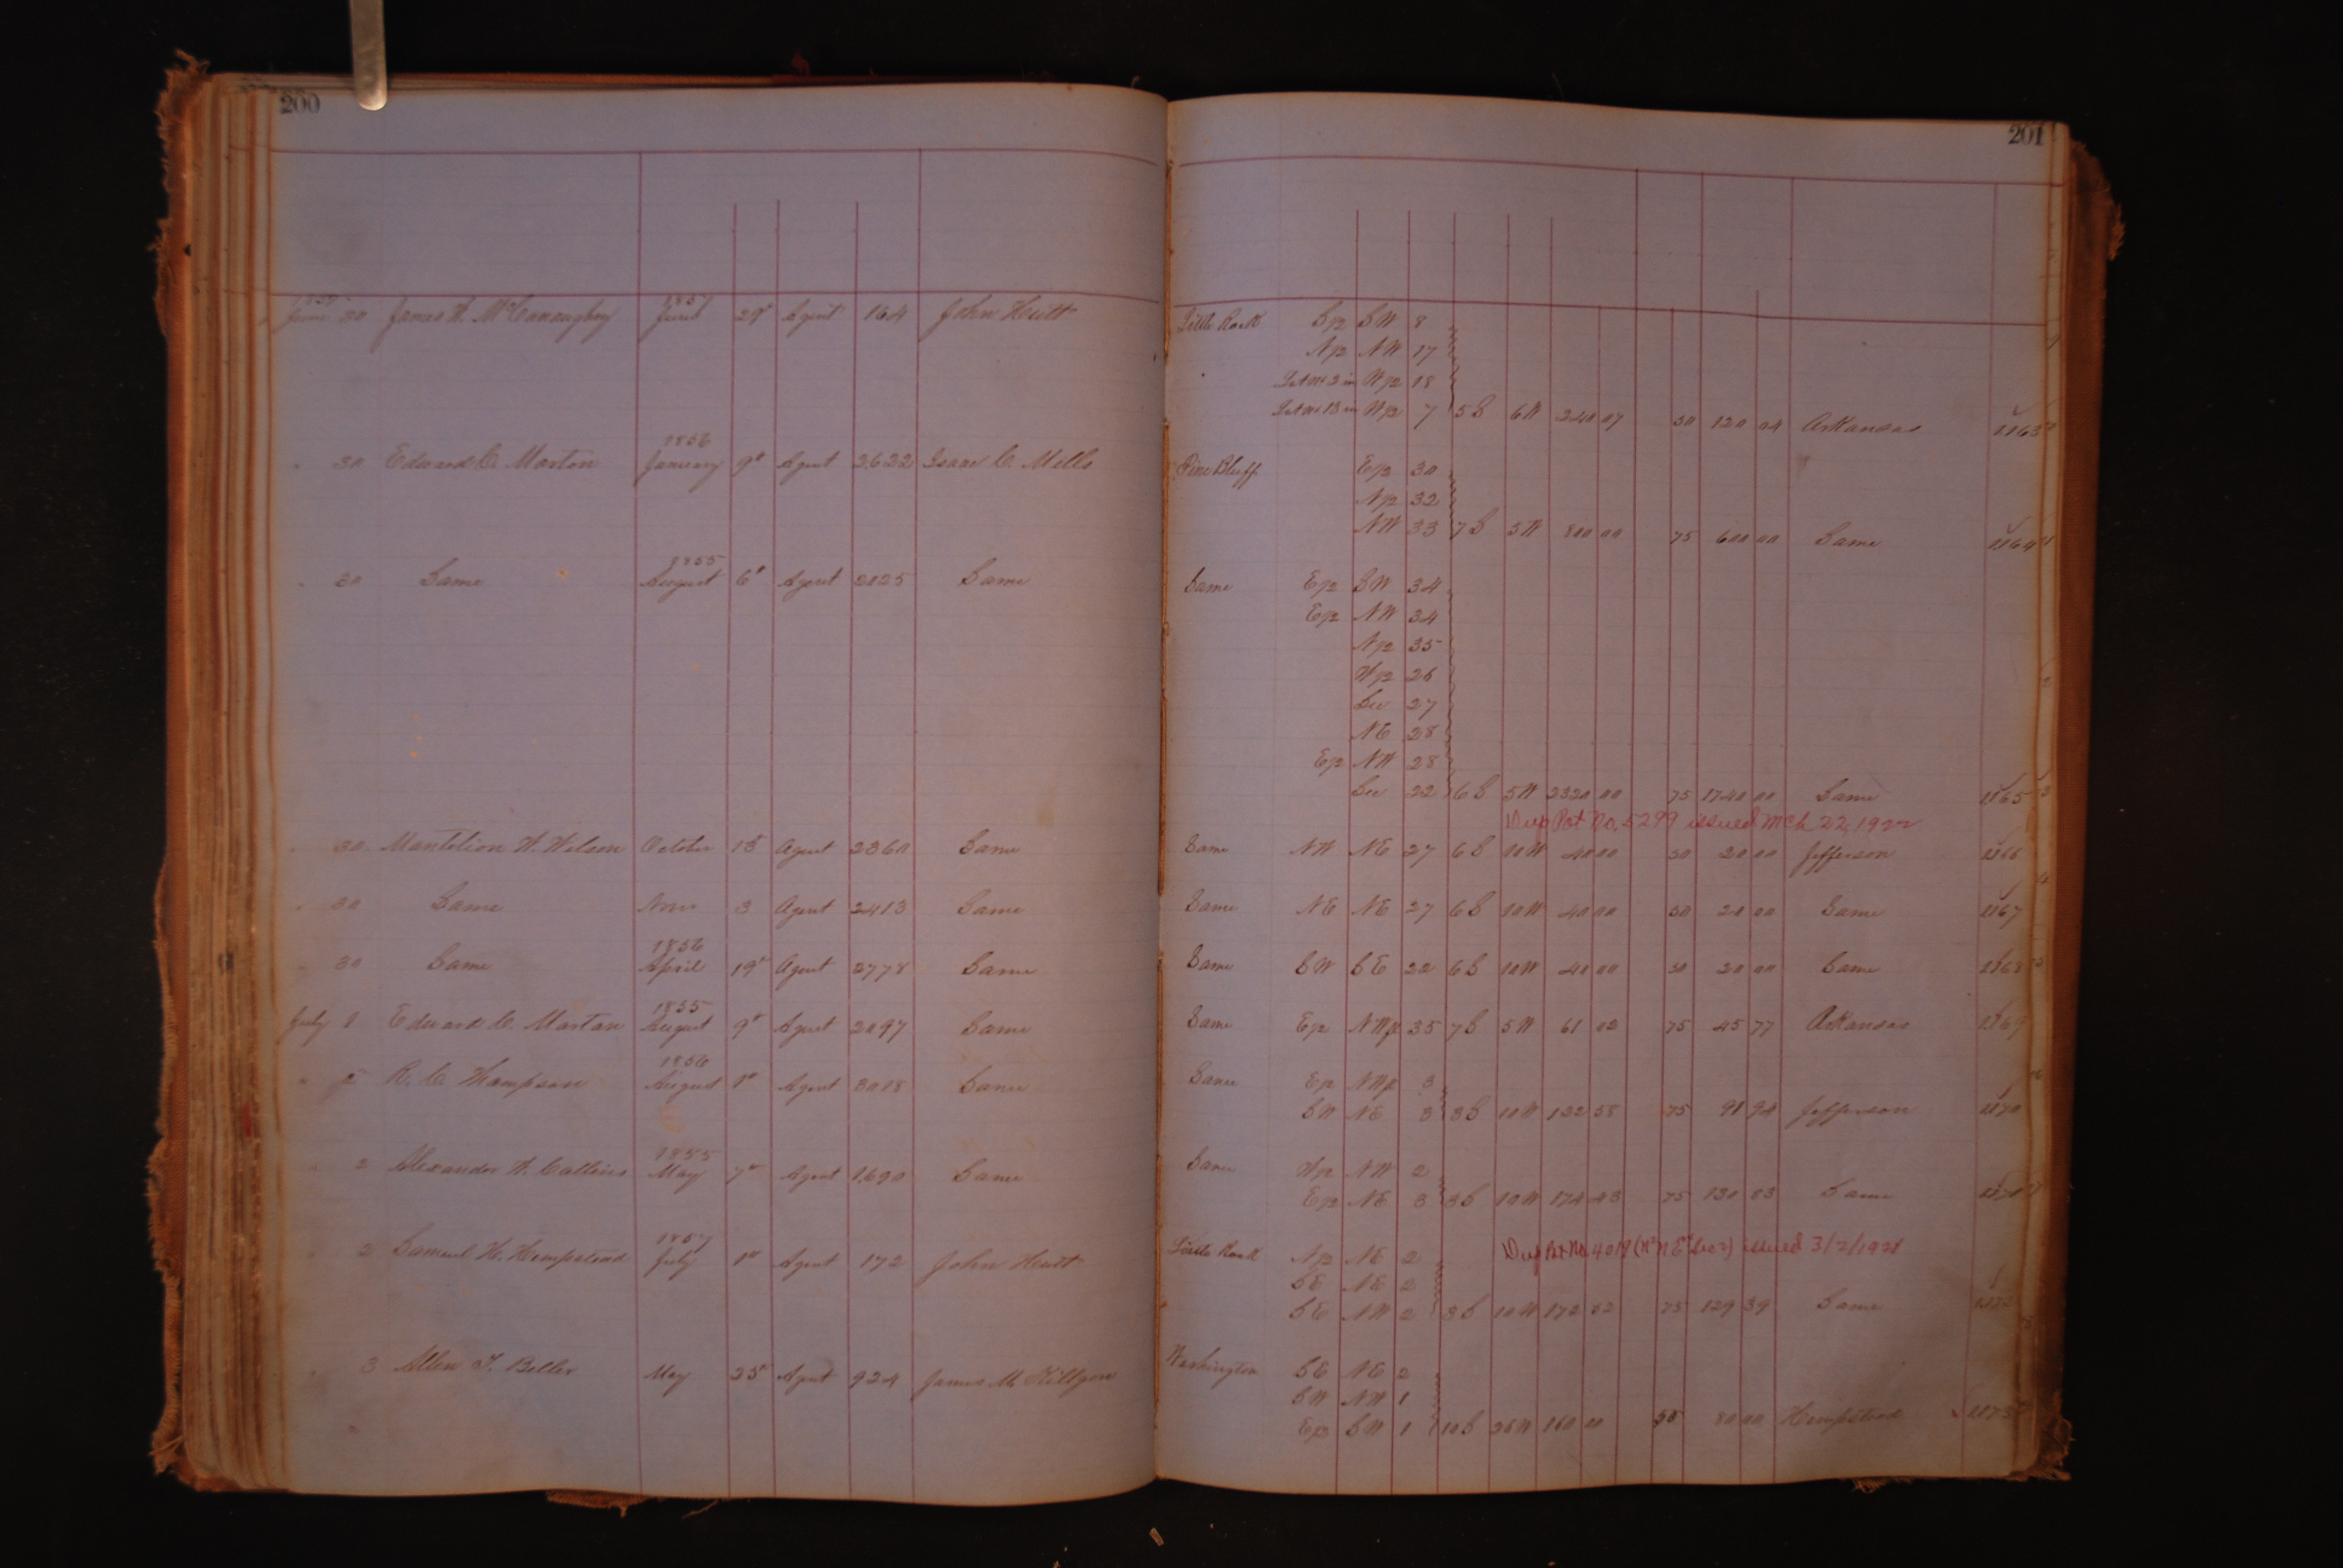 200
June 30 James H. McConaughey 1857 June 29" Agent 164 John Hutt
" 30 Edward C. Morton 1856 January 9" Agent 2622 Isaac C. Mills
" 30 Same 1855 August 6" Agent 2025 Same
" 30 Mantilion H. Wilson October 13 Agent 2360 Same
" 30 Same Nov 3 Agent 2413 Same
" 30 Same 1856 April 19" Agent 2778 Same
July 1 Edward C. Morton 1855 August 9" Agent 2097 Same
" 2 R. C. Thompson 1856 August 1" Agent 3018 Same
" 2 Alexander H. 1855 May 7" Agent 1690 Same
" 2 Samuel H. Hempstead 1857 July 1" Agent 172 John Hutt
" 3 Allen T. Beller May 25" Agent 924 James M. Killgore
201
Little Rock S/2 SW 8
N/2 NW 17
Lot No 2 in W/2 18
Lot No 13 in W/2 7 5S 6W 240 07 50 120 04 Arkansas 1163
Pine Bluff E/2 30
N/2 32
NW 33 7S 5W 800 00 75 600 00 Same 1164
Same E/2 SW 34
E/2 NW 34
N/2 35
W/2 26
Sec 27
NE 28
E/2 NW 28
Sec 22 6S 5W 2320 00 75 1740 00 Same 1165
Dup Pat No. 5299 issued Mch 22, 1922
Same NW NE 27 6S 10W 40 00 50 20 00 Jefferson 1166
Same NE NE 27 6S 10W 40 00 50 20 00 Same 1167
Same SW SE 22 6S 10W 40 00 50 20 00 Same 1168
Same E/2 NW/4 35 7S 5W 61 02 75 45 77 Arkansas 1169
Same E/2 NW/4 3
SW NE 3 3S 10W 122 58 75 91 94 Jefferson 1170
Same W/2 NW 2
E/2 NE 3 3S 10W 174 43 75 130 83 Same 1171
Little Rock N/2 NE 2 Dup Pat No. 4019 (N½ NE¼ Sec 2) issued 3/2/1921
SE NE 2
SE NW 2 3S 10W 172 52 75 129 39 Same 1172
Washington SE NE 2
SW NW 1
E/2 SW 1 10S 26W 160 00 50 80 00 Hempstead 1173